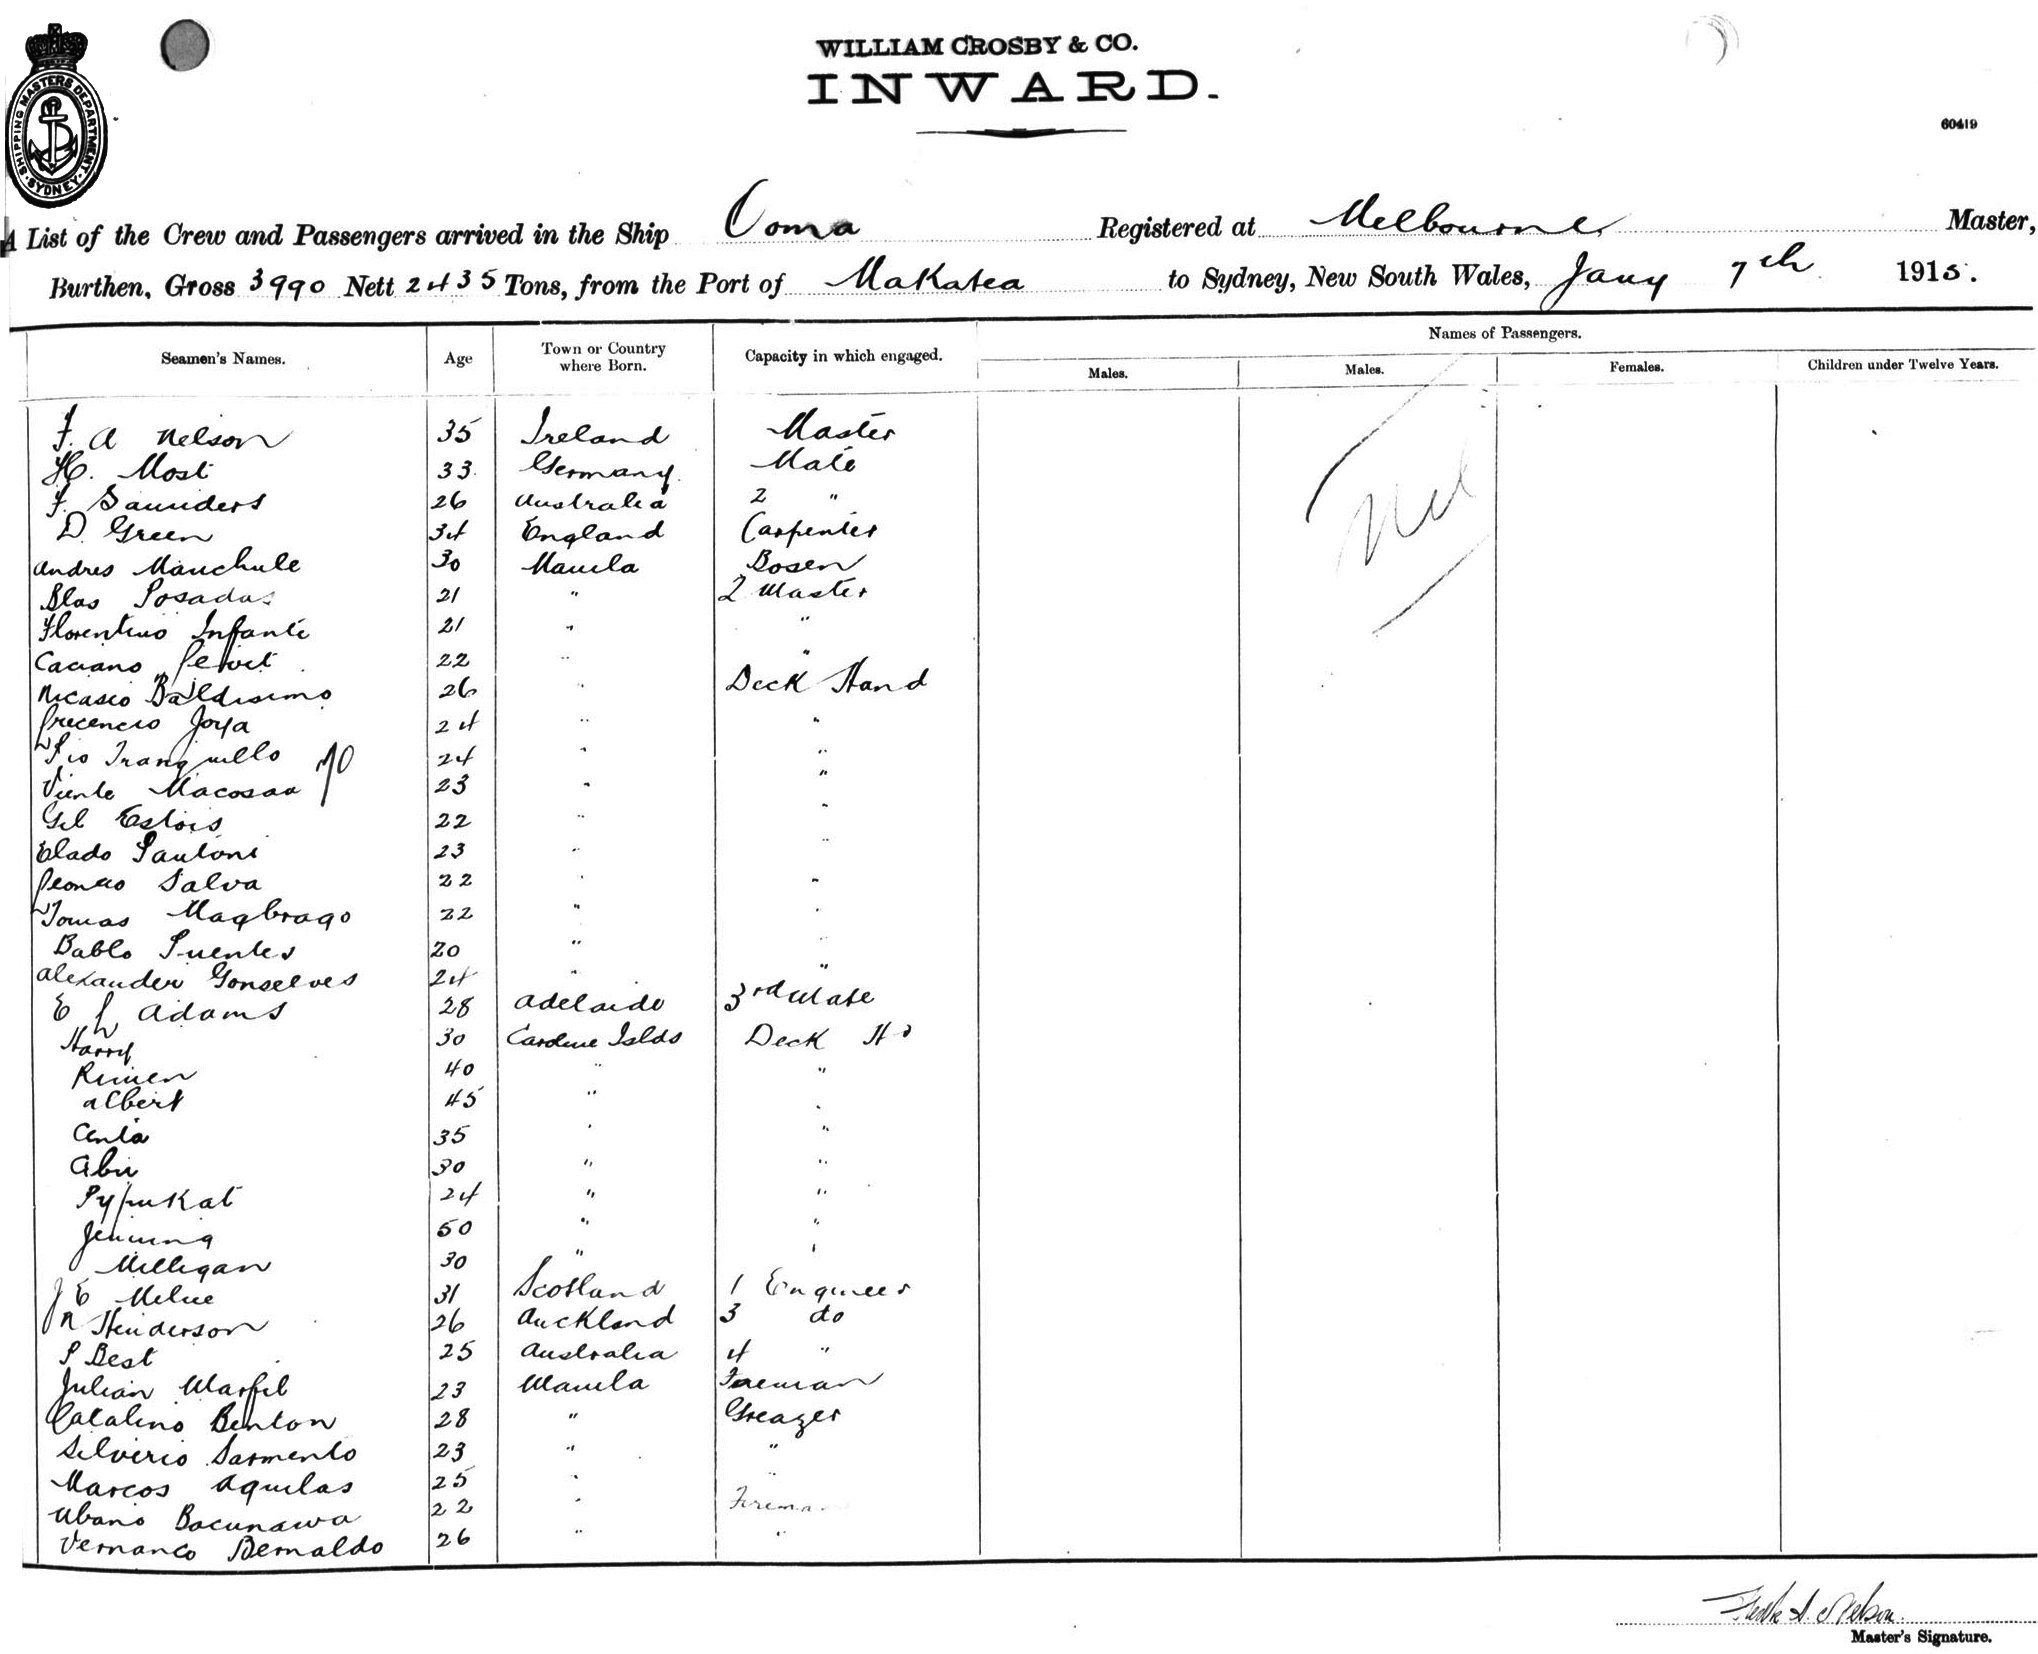 WILLIAM CROSBY & CO.
INWARD.
SHIPPING MASTERS DEPARTMENT SYDNEY
60419
A List of the Crew and Passengers arrived in the Ship Ooma Registered at Melbourne Master,
Burthen, Gross 3990 Nett 2435 Tons, from the Port of Makatea to Sydney, New South Wales, Jany 7th 1915.
Seamen's Names. Age Town or Country where Born. Capacity in which engaged. Names of Passengers.
Males. Males. Females. Children under Twelve Years.
Nil
F. A Nelson 35 Ireland Master
H. Most 33 Germany Mate
F. Saunders 26 Australia 2 "
D. Green 34 England Carpenter
Andres Manchule 30 Manila Bosen
Blas Posadas 21 " 2 Master
Florentino Infante 21 " "
Caciano 22 " "
Nicasio Baldisimo 26 " Deck Hand
Crecencio Joya 24 " "
Pio Tranquillo 24 " "
Viente Macosaa 23 " "
Gil Estois 22 " "
Elado Santoni 23 " "
Leoncio Salva 22 " "
Tomas Magbrago 22 " "
Bablo Puentes 20 " "
Alexander Gonselves 24 " "
E L Adams 28 Adelaide 3rd Mate
Harry 30 Caroline Islds Deck Hd
Rimen 40 " "
Albert 45 " "
Anta 35 " "
Abu 30 " "
Pypukat 24 " "
50 " "
Milligan 30 " "
J E Milne 31 Scotland 1 Engineer
R Henderson 26 Auckland 3 do
P Best 25 Australia 4 "
Julian Marfil 23 Manila Fireman
Catalino Benton 28 " Greazer
Silverio Sarmento 23 " "
Marcos Aquilas 25 " "
Ubano Bacunawa 22 " Fireman
Vernanco Bernaldo 26 " "
Fredk A. Nelson
Master's Signature.